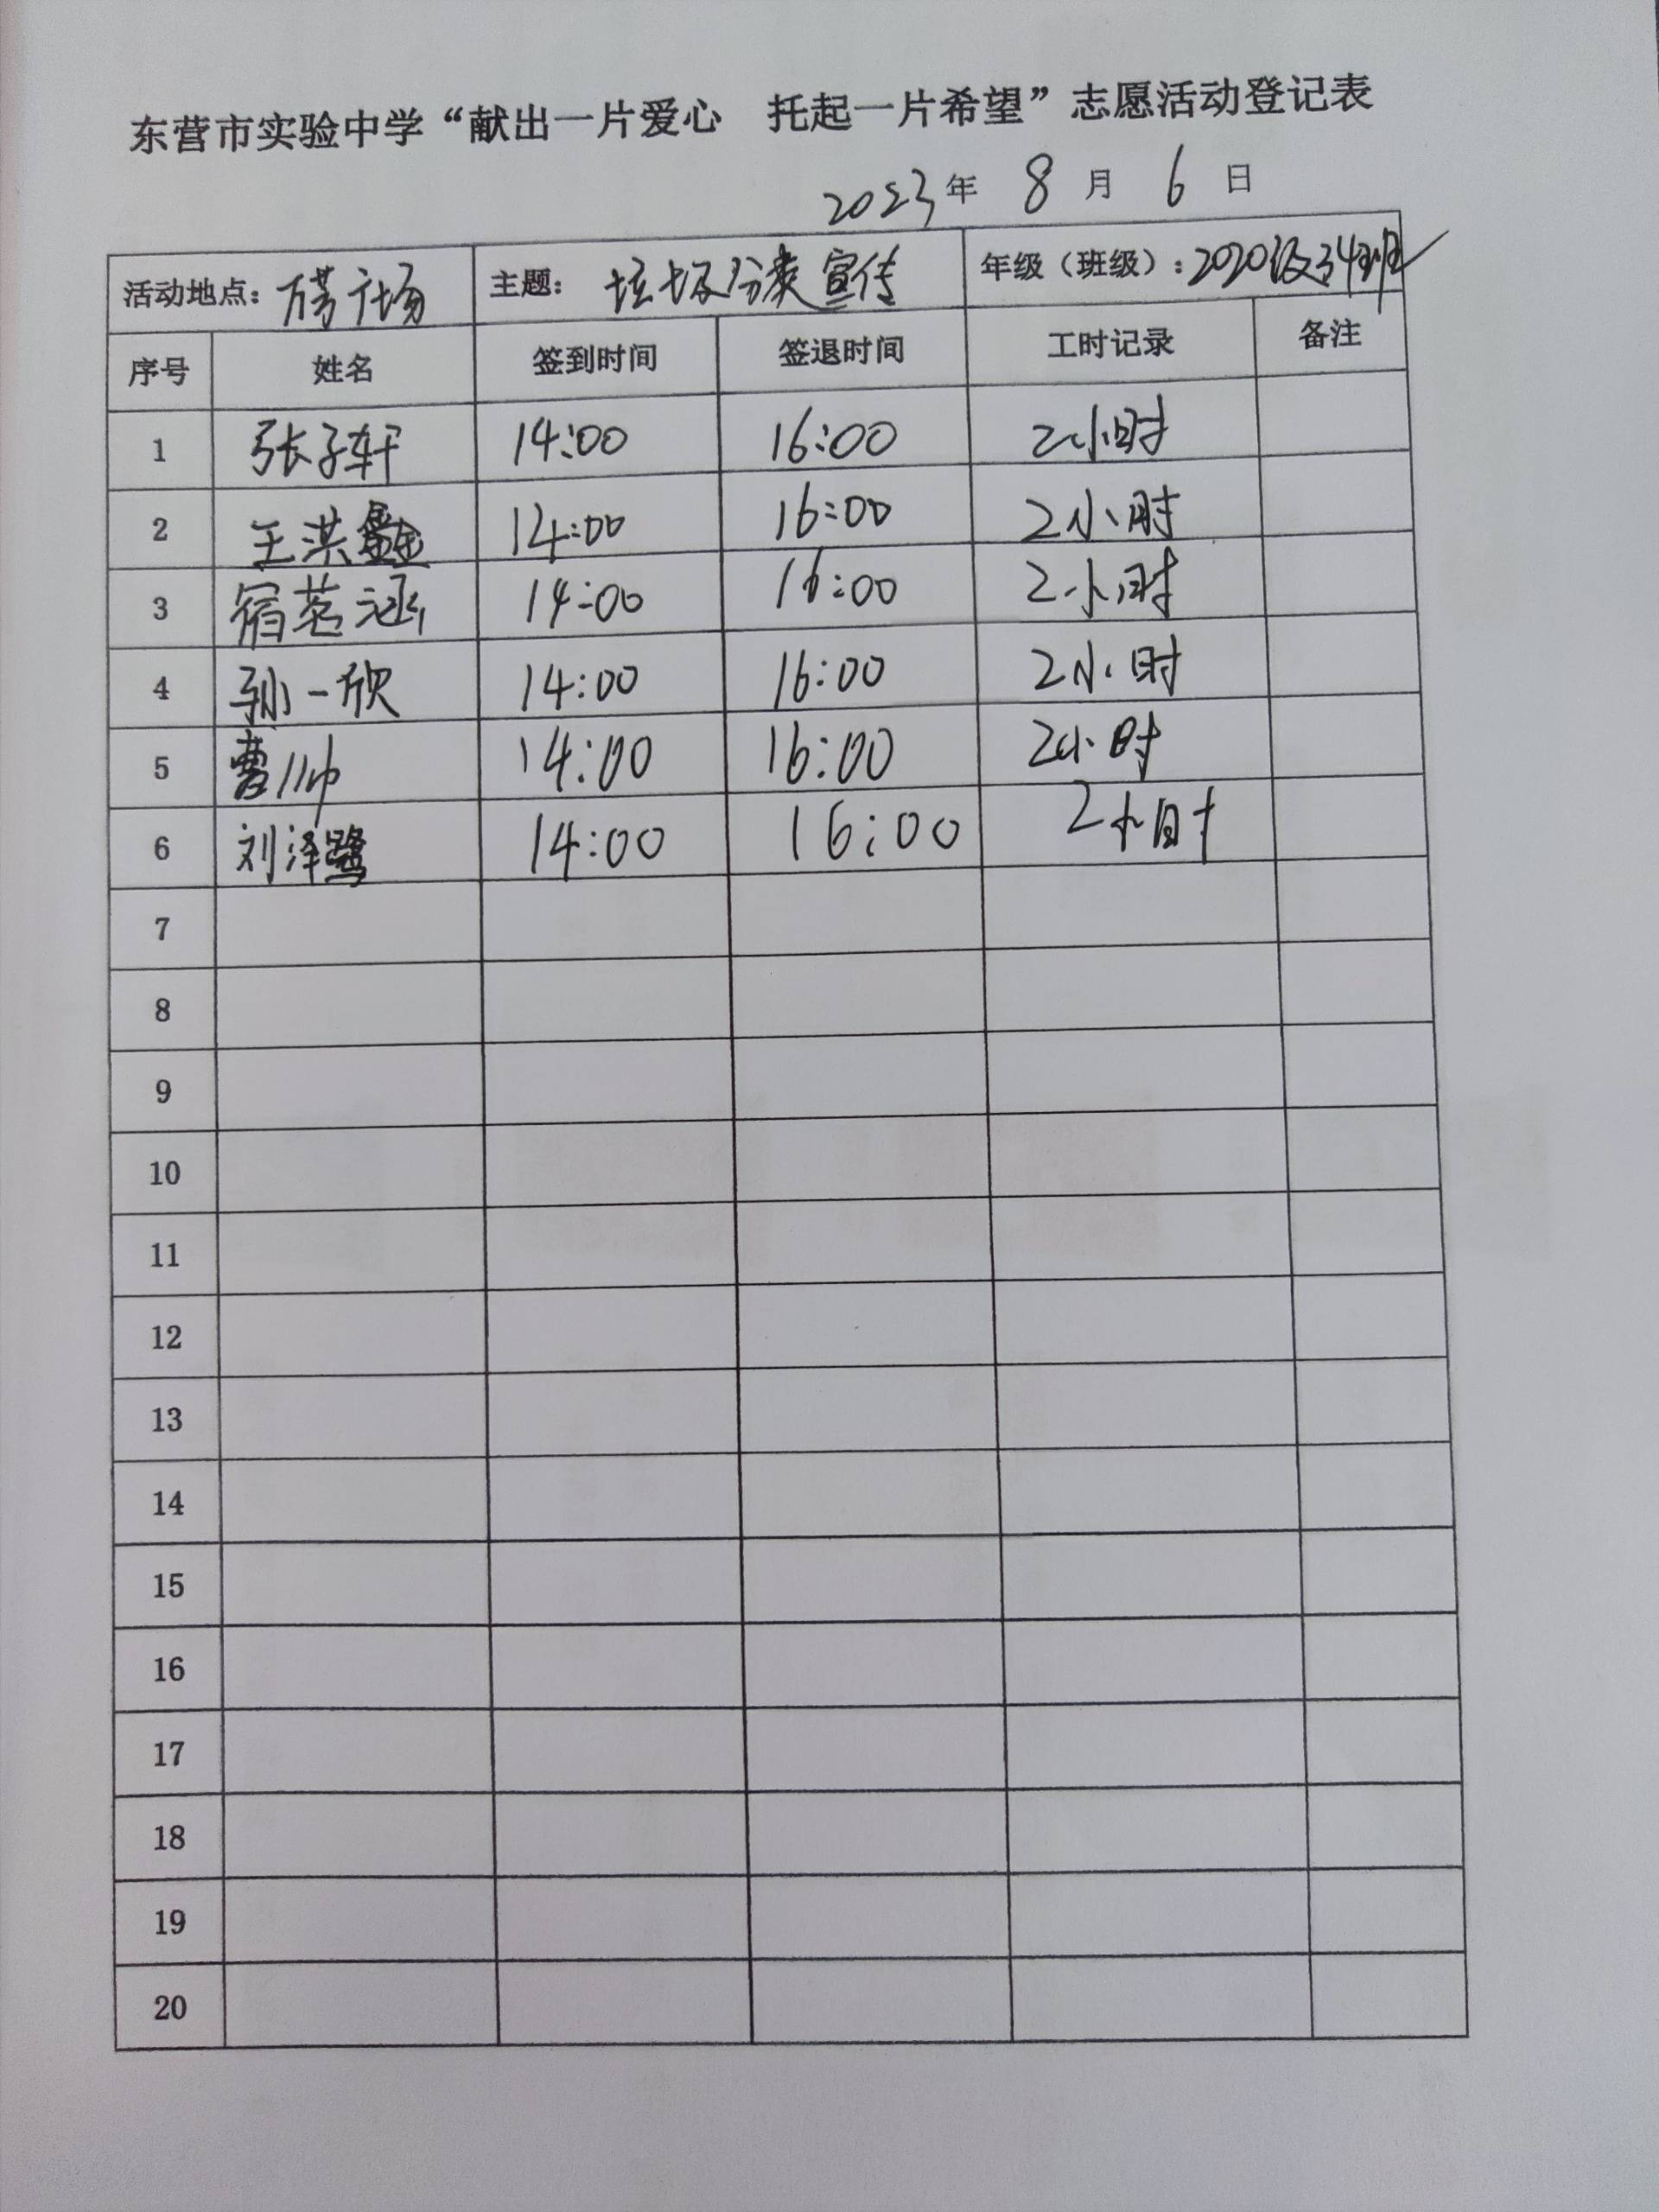 东营市实验中学“献出一片爱心 托起一片希望”志愿活动登记表
2023年 8 月 6 日
活动地点：万芳广场 主题：垃圾分类宣传 年级（班级）：2020级34班
序号 姓名 签到时间 签退时间 工时记录 备注
1 张子轩 14:00 16:00 2小时
2 王洪鑫 14:00 16:00 2小时
3 宿茗涵 14:00 16:00 2小时
4 孙一欣 14:00 16:00 2小时
5 曹帅 14:00 16:00 2小时
6 刘泽鹭 14:00 16:00 2小时
7
8
9
10
11
12
13
14
15
16
17
18
19
20